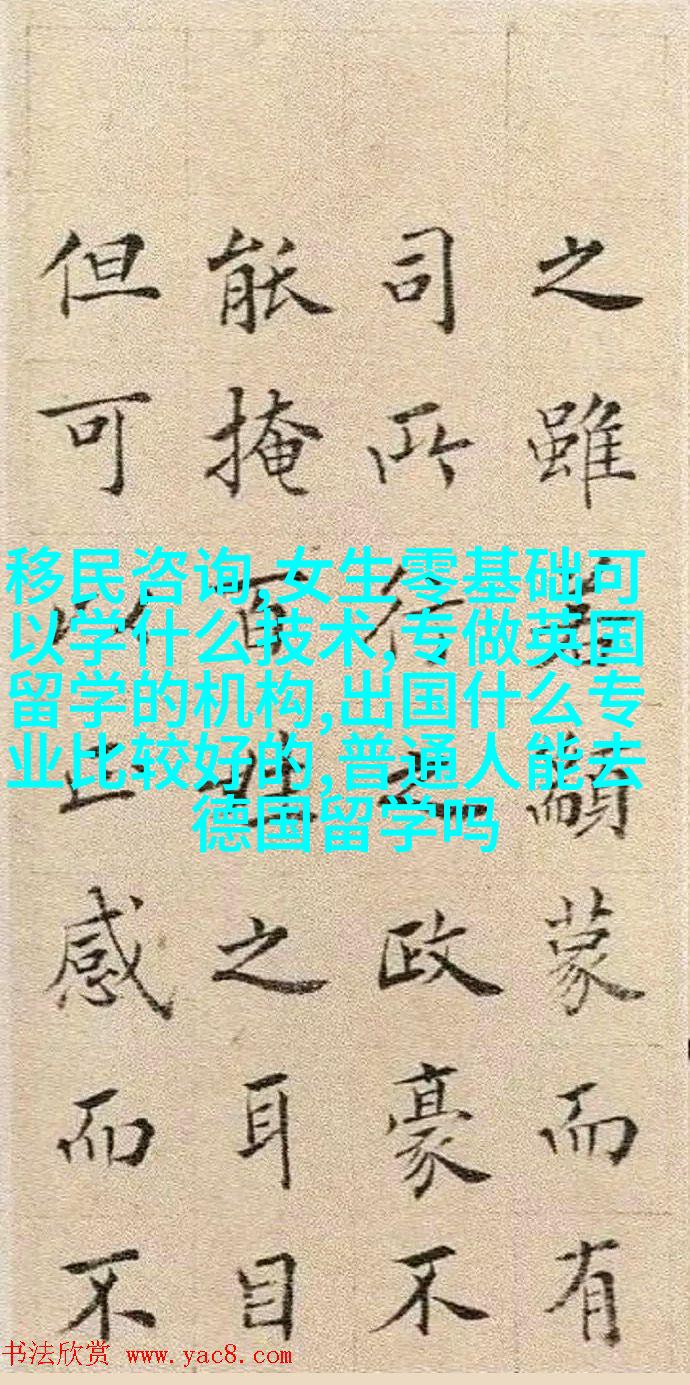 之雖顓蒙而有
司所行之政豪不
能掩百姓之耳目
但可以上感而不
移民咨询,女生零基础可
以学什么技术,专做英国
留学的机构,出国什么专
业比较好的,普通人能去
德国留学吗
书法欣赏 www.yac8.com